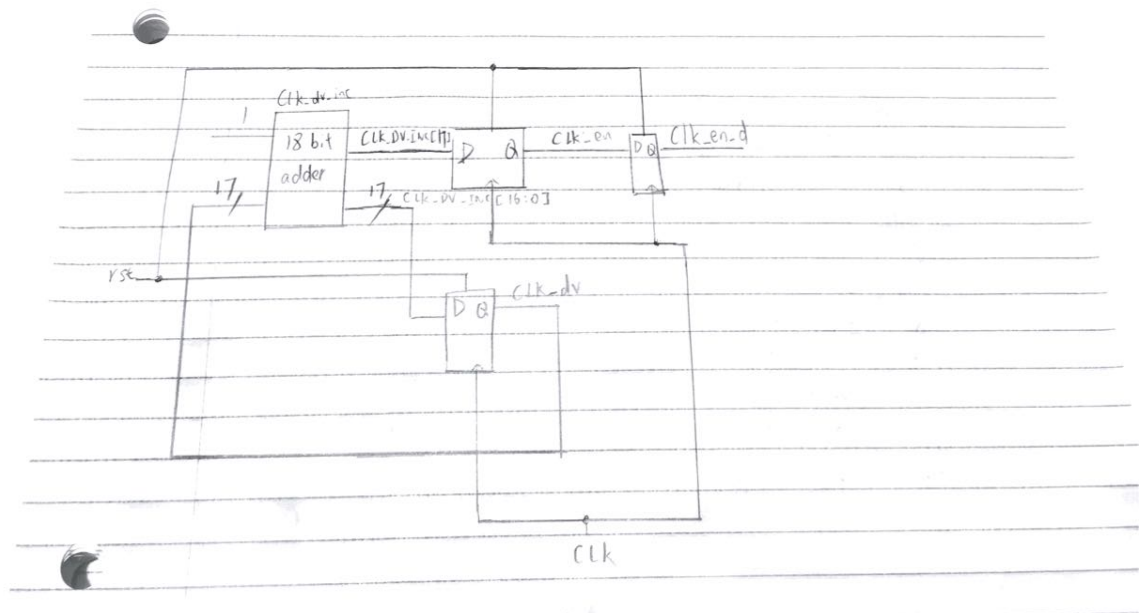 Clk_dv_inc
1
18 bit
adder
Clk_DV_Inc[17]
D Q
Clk_en
D Q
Clk_en_d
17
17
Clk_DV_Inc[16:0]
rst
D Q
Clk_dv
Clk